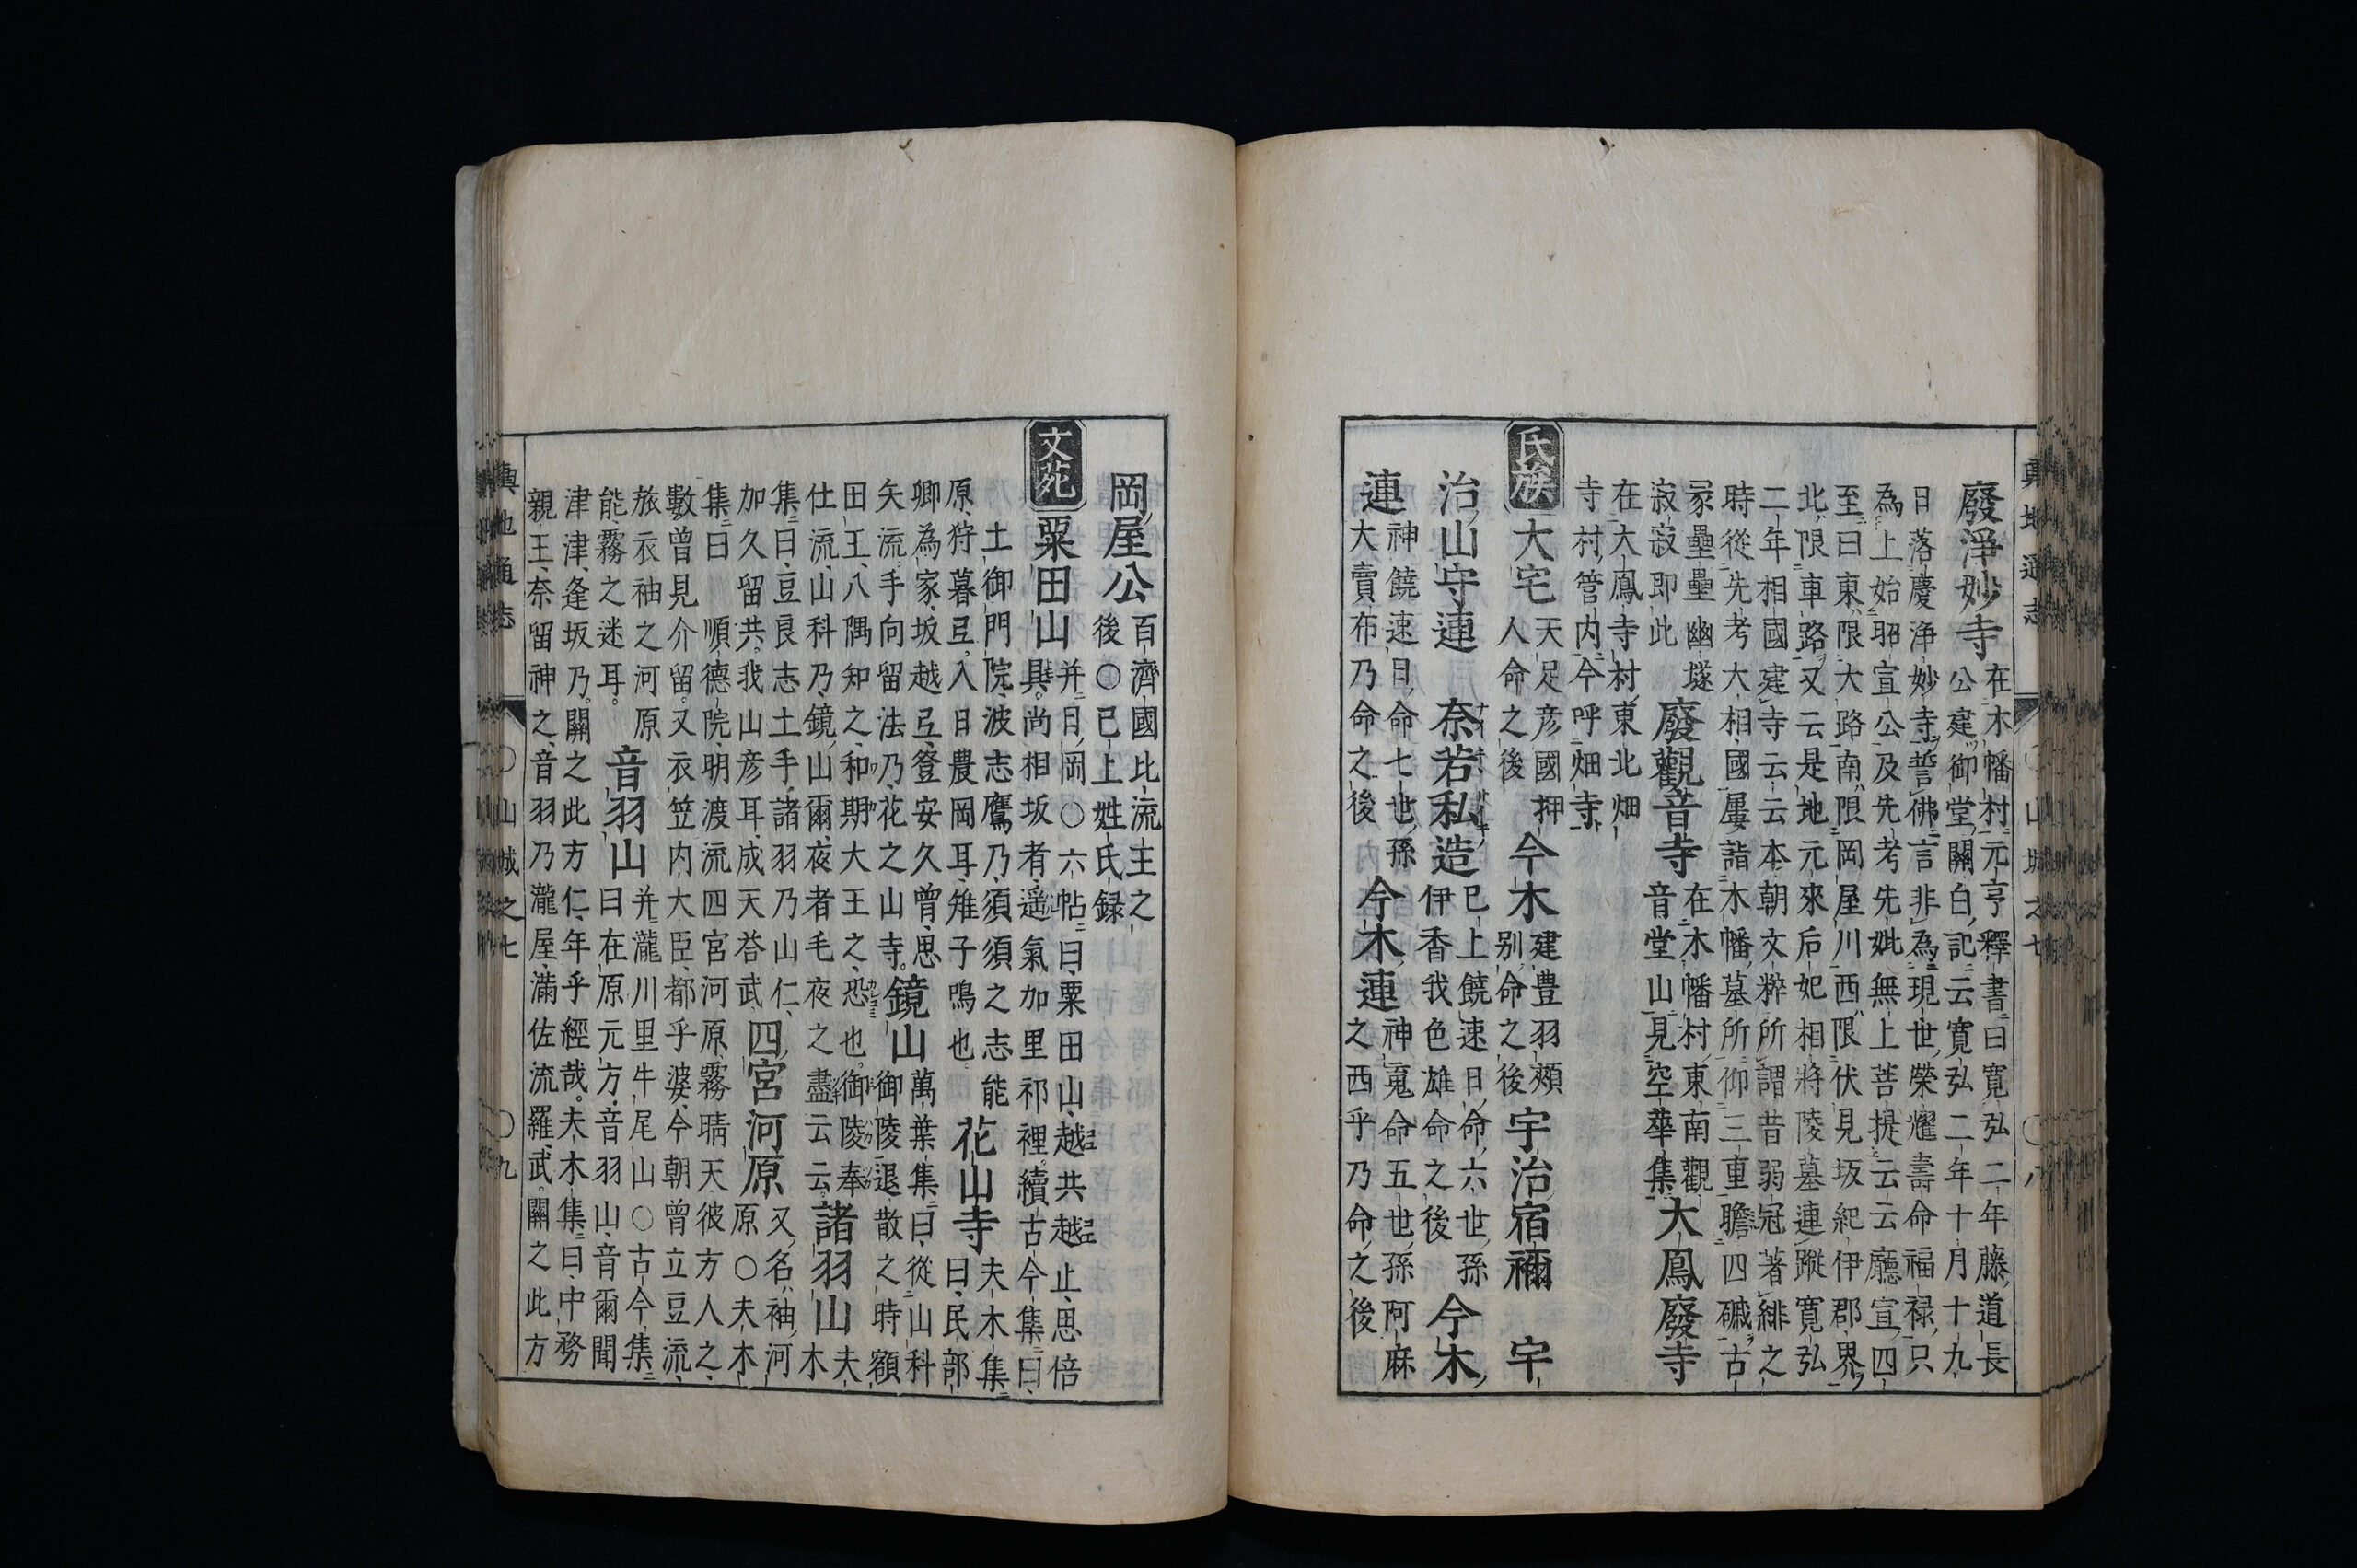 廢淨妙寺
在木幡村元亨釋書曰寛弘二年藤道長
公建御堂關白記云寛弘二年十月十九
日落慶浄妙寺誓佛言非為現世榮耀壽命福禄只
為上始昭宣公及先考先妣無上菩提云云廳宣四
至曰東限大路南限岡屋川西限伏見坂紀伊郡界
北限車路又云是地元來后妃相將陵墓連蹤寛弘
二年相國建寺云云本朝文粹所謂昔弱冠著緋之
時從先考大相國屢詣木幡墓所仰三重瞻四磩古
冢壘壘幽墜
寂寂即此
廢觀音寺
在木幡村東南觀
音堂山見空華集
大鳳廢寺
在大鳳寺村東北畑
寺村管内今呼畑寺
氏族
大宅
天足彦國押
人命之後
今木
建豊羽頰
别命之後
宇治宿禰
宇
治山守連
奈若私造
已上饒速日命六世孫
伊香我色雄命之後
今木
連
神饒速日命七世孫
大賣布乃命之後
今木連
神䰟命五世孫阿麻
之西乎乃命之後
輿地通志
○山城之七
○八
岡屋公
百濟國比流主之
後○已上姓氏録
文苑
粟田山
并日岡○六帖曰粟田山越共越止思倍
具尚相坂者遥氣加里祁裡續古今集曰
土御門院波志鷹乃須須之志能
原狩暮弖入日農岡耳雉子鳴也
花山寺
夫木集
曰民部
卿為家坂越弖簦安久曽思
矢流手向留法乃花之山寺
鏡山
萬葉集曰從山科
御陵退散之時額
田王八隅知之和期大王之恐也御陵奉
仕流山科乃鏡山爾夜者毛夜之盡云云
諸羽山
夫
木
集曰豆良志土手諸羽乃山仁
加久留共我山彦耳成天荅武
四宮河原
又名袖河
原○夫木
集曰順德院明渡流四宮河原霧晴天彼方人之
數曽見介留又衣笠内大臣都乎婆今朝曽立豆流
旅衣袖之河原
能霧之迷耳
音羽山
并瀧川里牛尾山○古今集
曰在原元方音羽山音爾聞
津津逢坂乃關之此方仁年乎經哉夫木集曰中務
親王奈留神之音羽乃瀧屋滿佐流羅武關之此方
輿地通志
○山城之七
○九